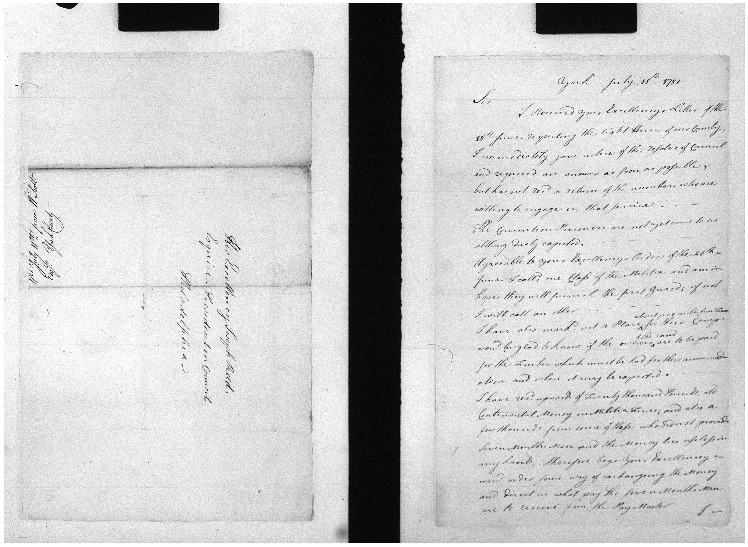 His Excellency Joseph Reed
Esquire President in Council
Philadelphia
York July 18th 1781
Sir
I Received your Excellencys Letter of the
respecting the light Horse of our County
I immediately gave notice of the resolve of Council
and required an answer as soon as possible &
but has not recd a return of the number who are
willing to engage in that service
The Convention Prisoners are not yet come to us
altho daily expected.
Agreeable to your Excellencys Orders of the 26th
June I call'd one Class of the Militia and am in
hopes they will furnish the first Guards, if not
I will call another
I have also mark'd out a Place for their Camp
woud be glad to know if the owners are to be paid
for the Timber which must be had for their accommod
ation and when it may be expected.
I have recd upwards of Twenty thousand Pounds, old
Continental Money in Militia Fines, and also a
few thousands from some of Class who did not provide
seven Months Men and the Money lies useless in
my hands, Therefore begs your Excellency
woud order some way of exchanging the Money
and direct us what pay the seven Months Men
are to receive from the Pay Master